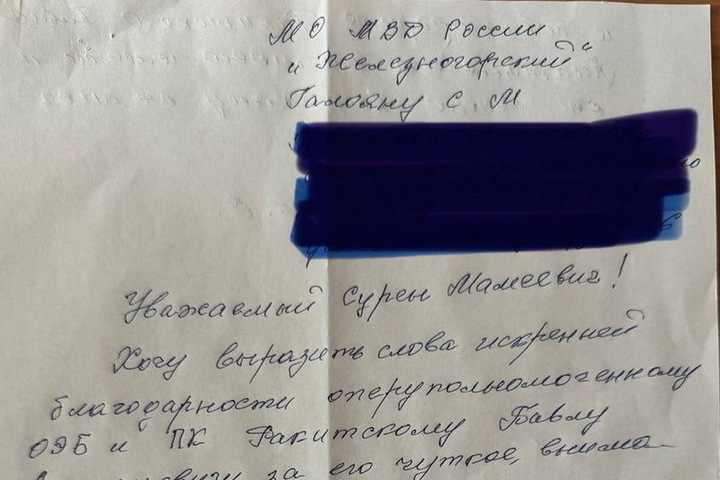 МО МВД России
„Железногорский“
Галояну С М
Уважаемый Сурен Мамеевич!
Хочу выразить слова искренней
благодарности оперуполномоченному
ОЭБ и ПК Ракитскому Павлу
за его чуткое, внима-